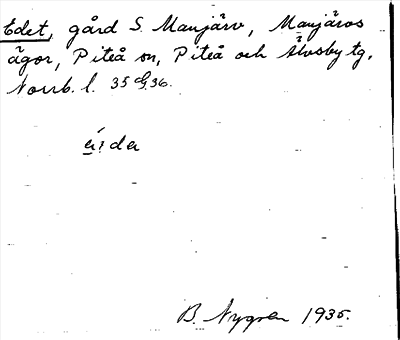 Edet, gård S. Manjärv, Manjärvs
ägor, Piteå sn, Piteå och Älvsby tg,
Norrb. l. 35 G 36.
e̲i:da
B. Nygren 1935.